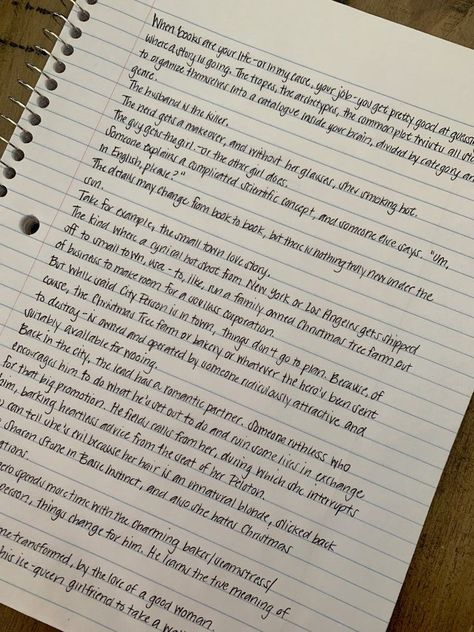 When books are your life-or in my case, your job-you get pretty good at guessing
where a story is going. The tropes, the archetypes, the common plot twists all start
to organize themselves into a catalogue inside your brain, divided by category and
genre.
The husband is the killer.
The nerd gets a makeover, and without her glasses, she's smoking hot.
The guy gets the girl-or the other girl does.
Someone explains a complicated scientific concept, and someone else says, "Um,
in English, please?"
The details may change from book to book, but there is nothing truly new under the
sun.
Take for example, the small town love story.
The kind where a cynical hot shot from New York or Los Angeles gets shipped
off to small town, USA - to, like, run a family owned Christmas tree farm out
of business to make room for a soulless corporation.
But while said City Person is in town, things don't go to plan. Because, of
course, the Christmas Tree farm or bakery or whatever the hero's been sent
to destroy-is owned and operated by someone ridiculously attractive and
suitably available for wooing.
Back in the city, the lead has a romantic partner. Someone ruthless who
encourages him to do what he's set out to do and ruin some lives in exchange
for that big promotion. He fields calls from her, during which she interrupts
him, barking heartless advice from the seat of her Peloton.
can tell she's evil because her hair is an unnatural blonde, slicked back
Sharon Stone in Basic Instinct, and also she hates Christmas
ations
ero spends more time with the charming baker/seamstress/
person, things change for him. He learns the true meaning of
me transformed, by the love of a good woman.
his ice-queen girlfriend to take a